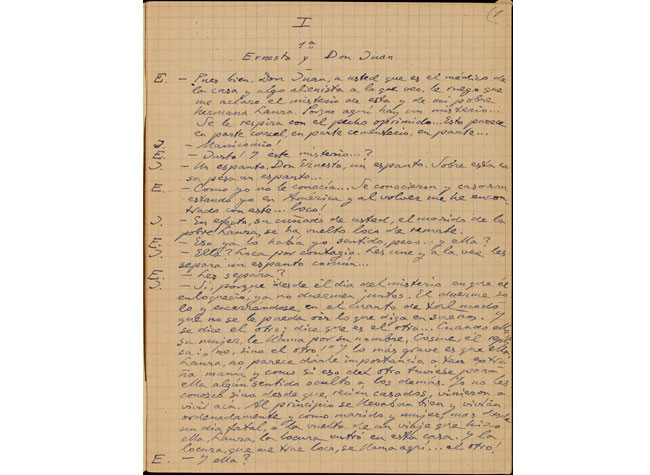 1
I
1ª
Ernesto y Don Juan
E. — Pues bien, Don Juan, a usted que es el médico de
la casa y algo alienista a lo que veo, le ruego que
me aclare el misterio de esta y de mi pobre
hermana Laura. Porque aquí hay un misterio...
Se le respira con el pecho oprimido... Esto parece
en parte carcel, en parte cementerio, en parte...
J. — Manicomio!
E. — Justo! Y este misterio...?
J. — Un espanto, Don Ernesto, un espanto. Sobre esta ca
sa pesa un espanto...
E. — Como yo no le conocía... Se conocieron y casaron
estando yo en América y al volver me he encon
trado con este... loco!
J. — En efecto, su cuñado de usted, el marido de la
pobre Laura, se ha vuelto loco de remate.
E. — Eso ya lo había yo sentido, pero... y ella?
J. — Ella? Loca por contagio. Les une y a la vez les
separa un espanto común...
E. — Les separa?
J. — Sí, porque desde el día del misterio en que él
enloqueció, ya no duermen juntos. El duerme so
lo y encerrándose en el cuarto de tal modo
que no se le pueda oir lo que diga en sueños. Y
se dice el otro; dice que es el otro... Cuando ella
su mujer, le llama por su nombre, Cosme, él
"no, sino el otro!" Y lo más grave es que ella,
Laura, no parece darle importancia a tan extra
ña manía y como si eso del otro tuviese para
ella algún sentido oculto a los demás. Yo no les
conozco sino desde que, recién casados, vinieron a
vivir acá. Al principio se llevaban bien y vivían
ordenadamente y como marido y mujer, mas desde
un día fatal, a la vuelta de un viaje que hizo
ella, Laura, la locura entró en esta casa. Y la
locura, que me trae loco, se llama aquí... el otro!
E. — Y ella?